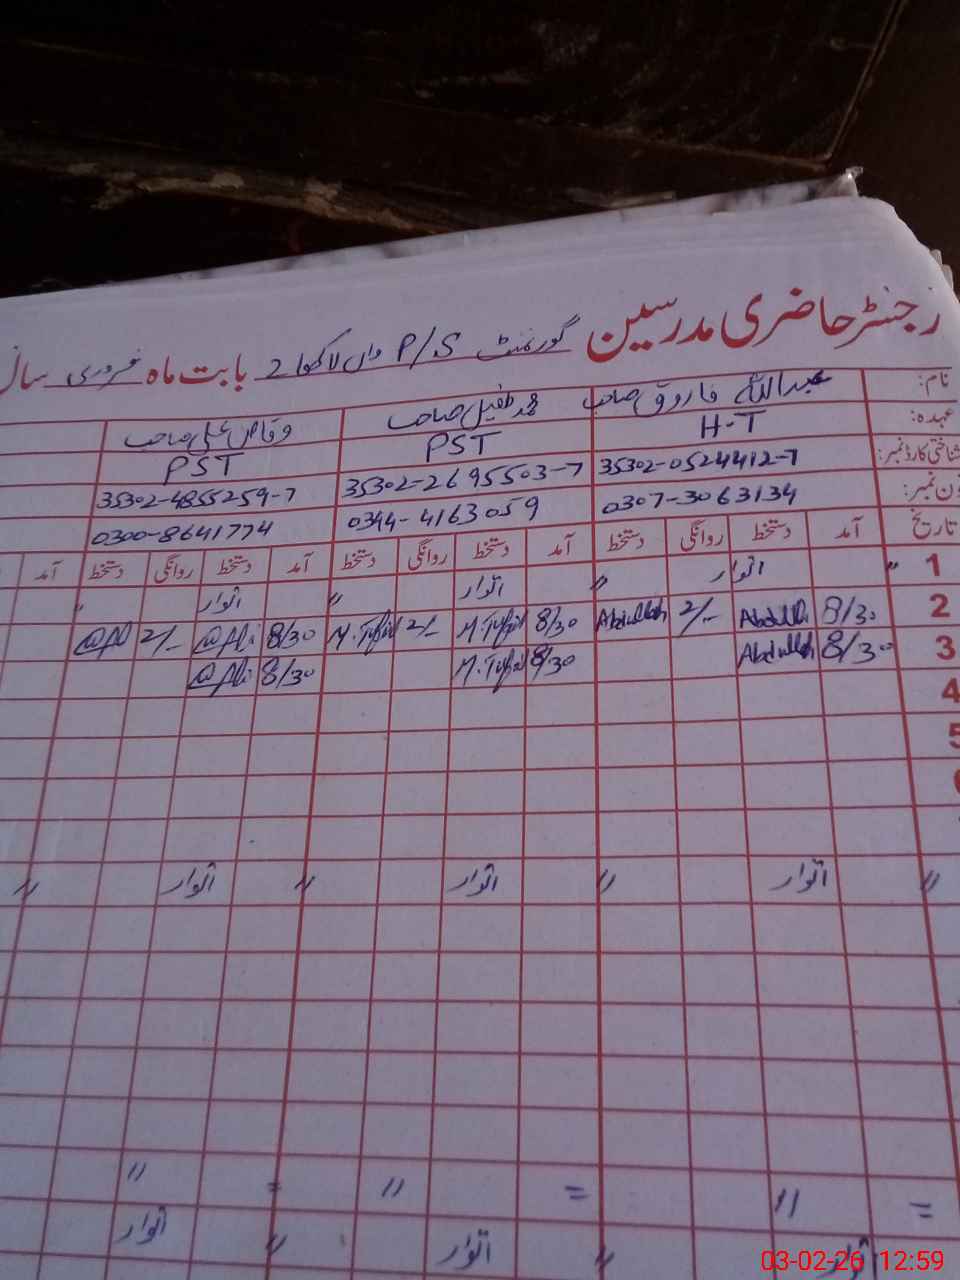 رجسٹر حاضری مدرسین گورنمنٹ P/S واں لاکھا 2 بابت ماہ فروری سال
نام: عبداللہ فاروق صاحب محمد طفیل صاحب وقاص علی صاحب
عہدہ: H-T PST PST
شناختی کارڈ نمبر: 35302-0524412-7 35302-2695503-7 35302-4855259-7
فون نمبر: 0307-3063134 0344-4163059 0300-8641774
تاریخ آمد دستخط روانگی دستخط آمد دستخط روانگی دستخط آمد دستخط روانگی دستخط آمد
1 " اتوار " اتوار " اتوار "
2 8/30 Abdullah 2/- Abdullah 8/30 M.Tufail 2/- M.Tufail 8/30 @Ali 2/- @Ali
3 8/30 Abdullah 8/30 M.Tufail 8/30 @Ali
4
5
6
" اتوار " اتوار " اتوار "
= " = " = "
اتوار " اتوار " اتوار
03-02-26 12:59